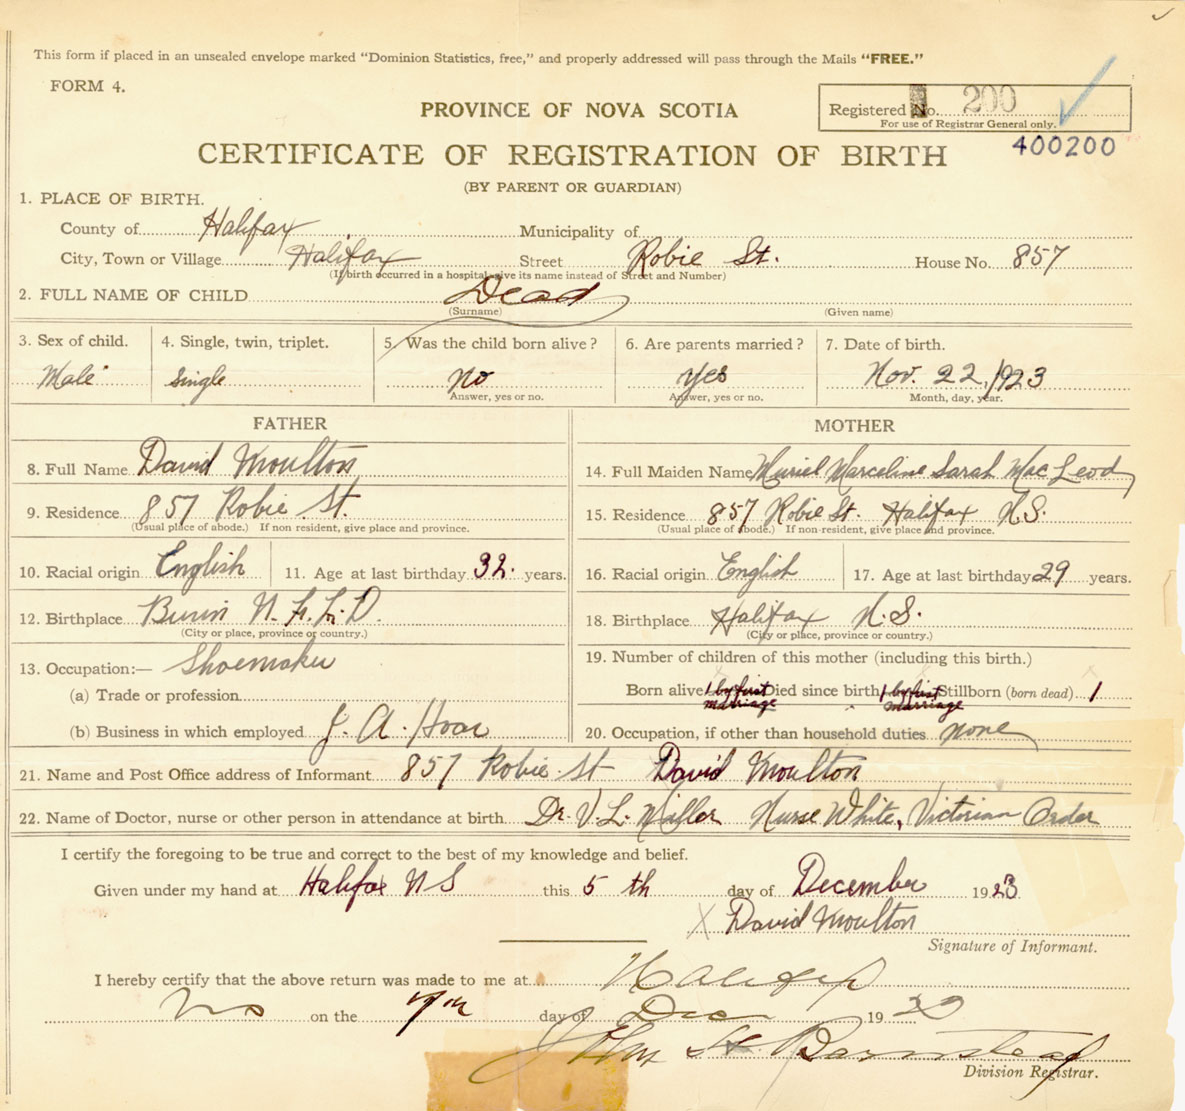 This form if placed in an unsealed envelope marked "Dominion Statistics, free," and properly addressed will pass through the Mails "FREE."
FORM 4.
PROVINCE OF NOVA SCOTIA
Registered No. 200
For use of Registrar General only.
400200
CERTIFICATE OF REGISTRATION OF BIRTH
(BY PARENT OR GUARDIAN)
1. PLACE OF BIRTH.
County of Halifax Municipality of
City, Town or Village Halifax Street Robie St. House No. 857
(If birth occurred in a hospital give its name instead of Street and Number)
2. FULL NAME OF CHILD Dead
(Surname) (Given name)
3. Sex of child. 4. Single, twin, triplet. 5. Was the child born alive? 6. Are parents married? 7. Date of birth.
Male Single No Yes Nov. 22, 1923
Answer, yes or no. Answer, yes or no. Month, day, year.
FATHER MOTHER
8. Full Name David Moulton 14. Full Maiden Name Muriel Marceline Sarah MacLeod
9. Residence 857 Robie St. 15. Residence 857 Robie St. Halifax N.S.
(Usual place of abode.) If non resident, give place and province. (Usual place of abode.) If non-resident, give place and province.
10. Racial origin English 11. Age at last birthday 32. years. 16. Racial origin English 17. Age at last birthday 29 years.
12. Birthplace Burin N.F.L.D. 18. Birthplace Halifax N.S.
(City or place, province or country.) (City or place, province or country.)
13. Occupation:— Shoemaker 19. Number of children of this mother (including this birth.)
(a) Trade or profession Born alive 1 by first marriage Died since birth 1 by first marriage Stillborn (born dead) 1
(b) Business in which employed J. A. Hoar 20. Occupation, if other than household duties none
21. Name and Post Office address of Informant 857 Robie St David Moulton
22. Name of Doctor, nurse or other person in attendance at birth Dr. V. L. Miller Nurse White, Victorian Order
I certify the foregoing to be true and correct to the best of my knowledge and belief.
Given under my hand at Halifax N S this 5 th day of December 1923
X David Moulton
Signature of Informant.
I hereby certify that the above return was made to me at Halifax
NS on the 7th day of Dec 19
Division Registrar.